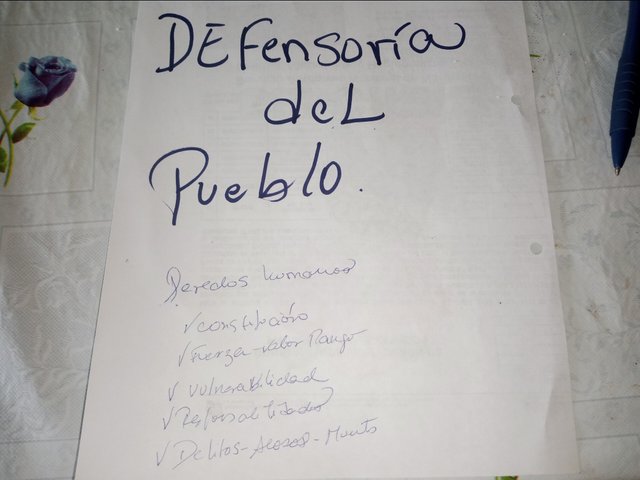 DEfensoría
del
Pueblo.
Derechos humanos
✓ Constitución
✓ Fuerza-valor Rango
✓ Vulnerabilidad
✓ Responsabilidad
✓ Delitos-Acosos-